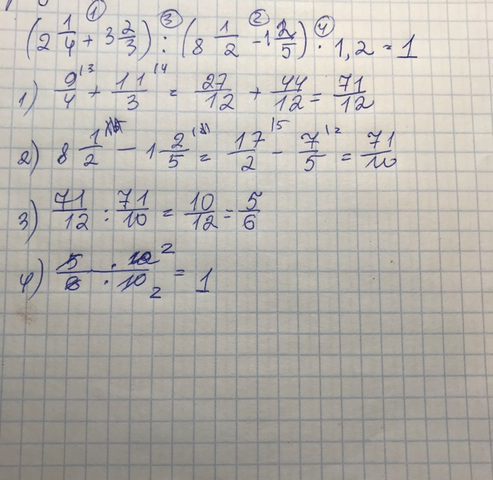 ① ③ ② ④
(2 1/4 + 3 2/3) : (8 1/2 - 1 2/5) · 1,2 = 1
1) 9/4 ⁽³ + 11/3 ⁽⁴ = 27/12 + 44/12 = 71/12
2) 8 1/2 - 1 2/5 = 17/2 ⁽⁵ - 7/5 ⁽² = 71/10
3) 71/12 : 71/10 = 10/12 = 5/6
4) 5 · 12 ² / 6 · 10 ₂ = 1